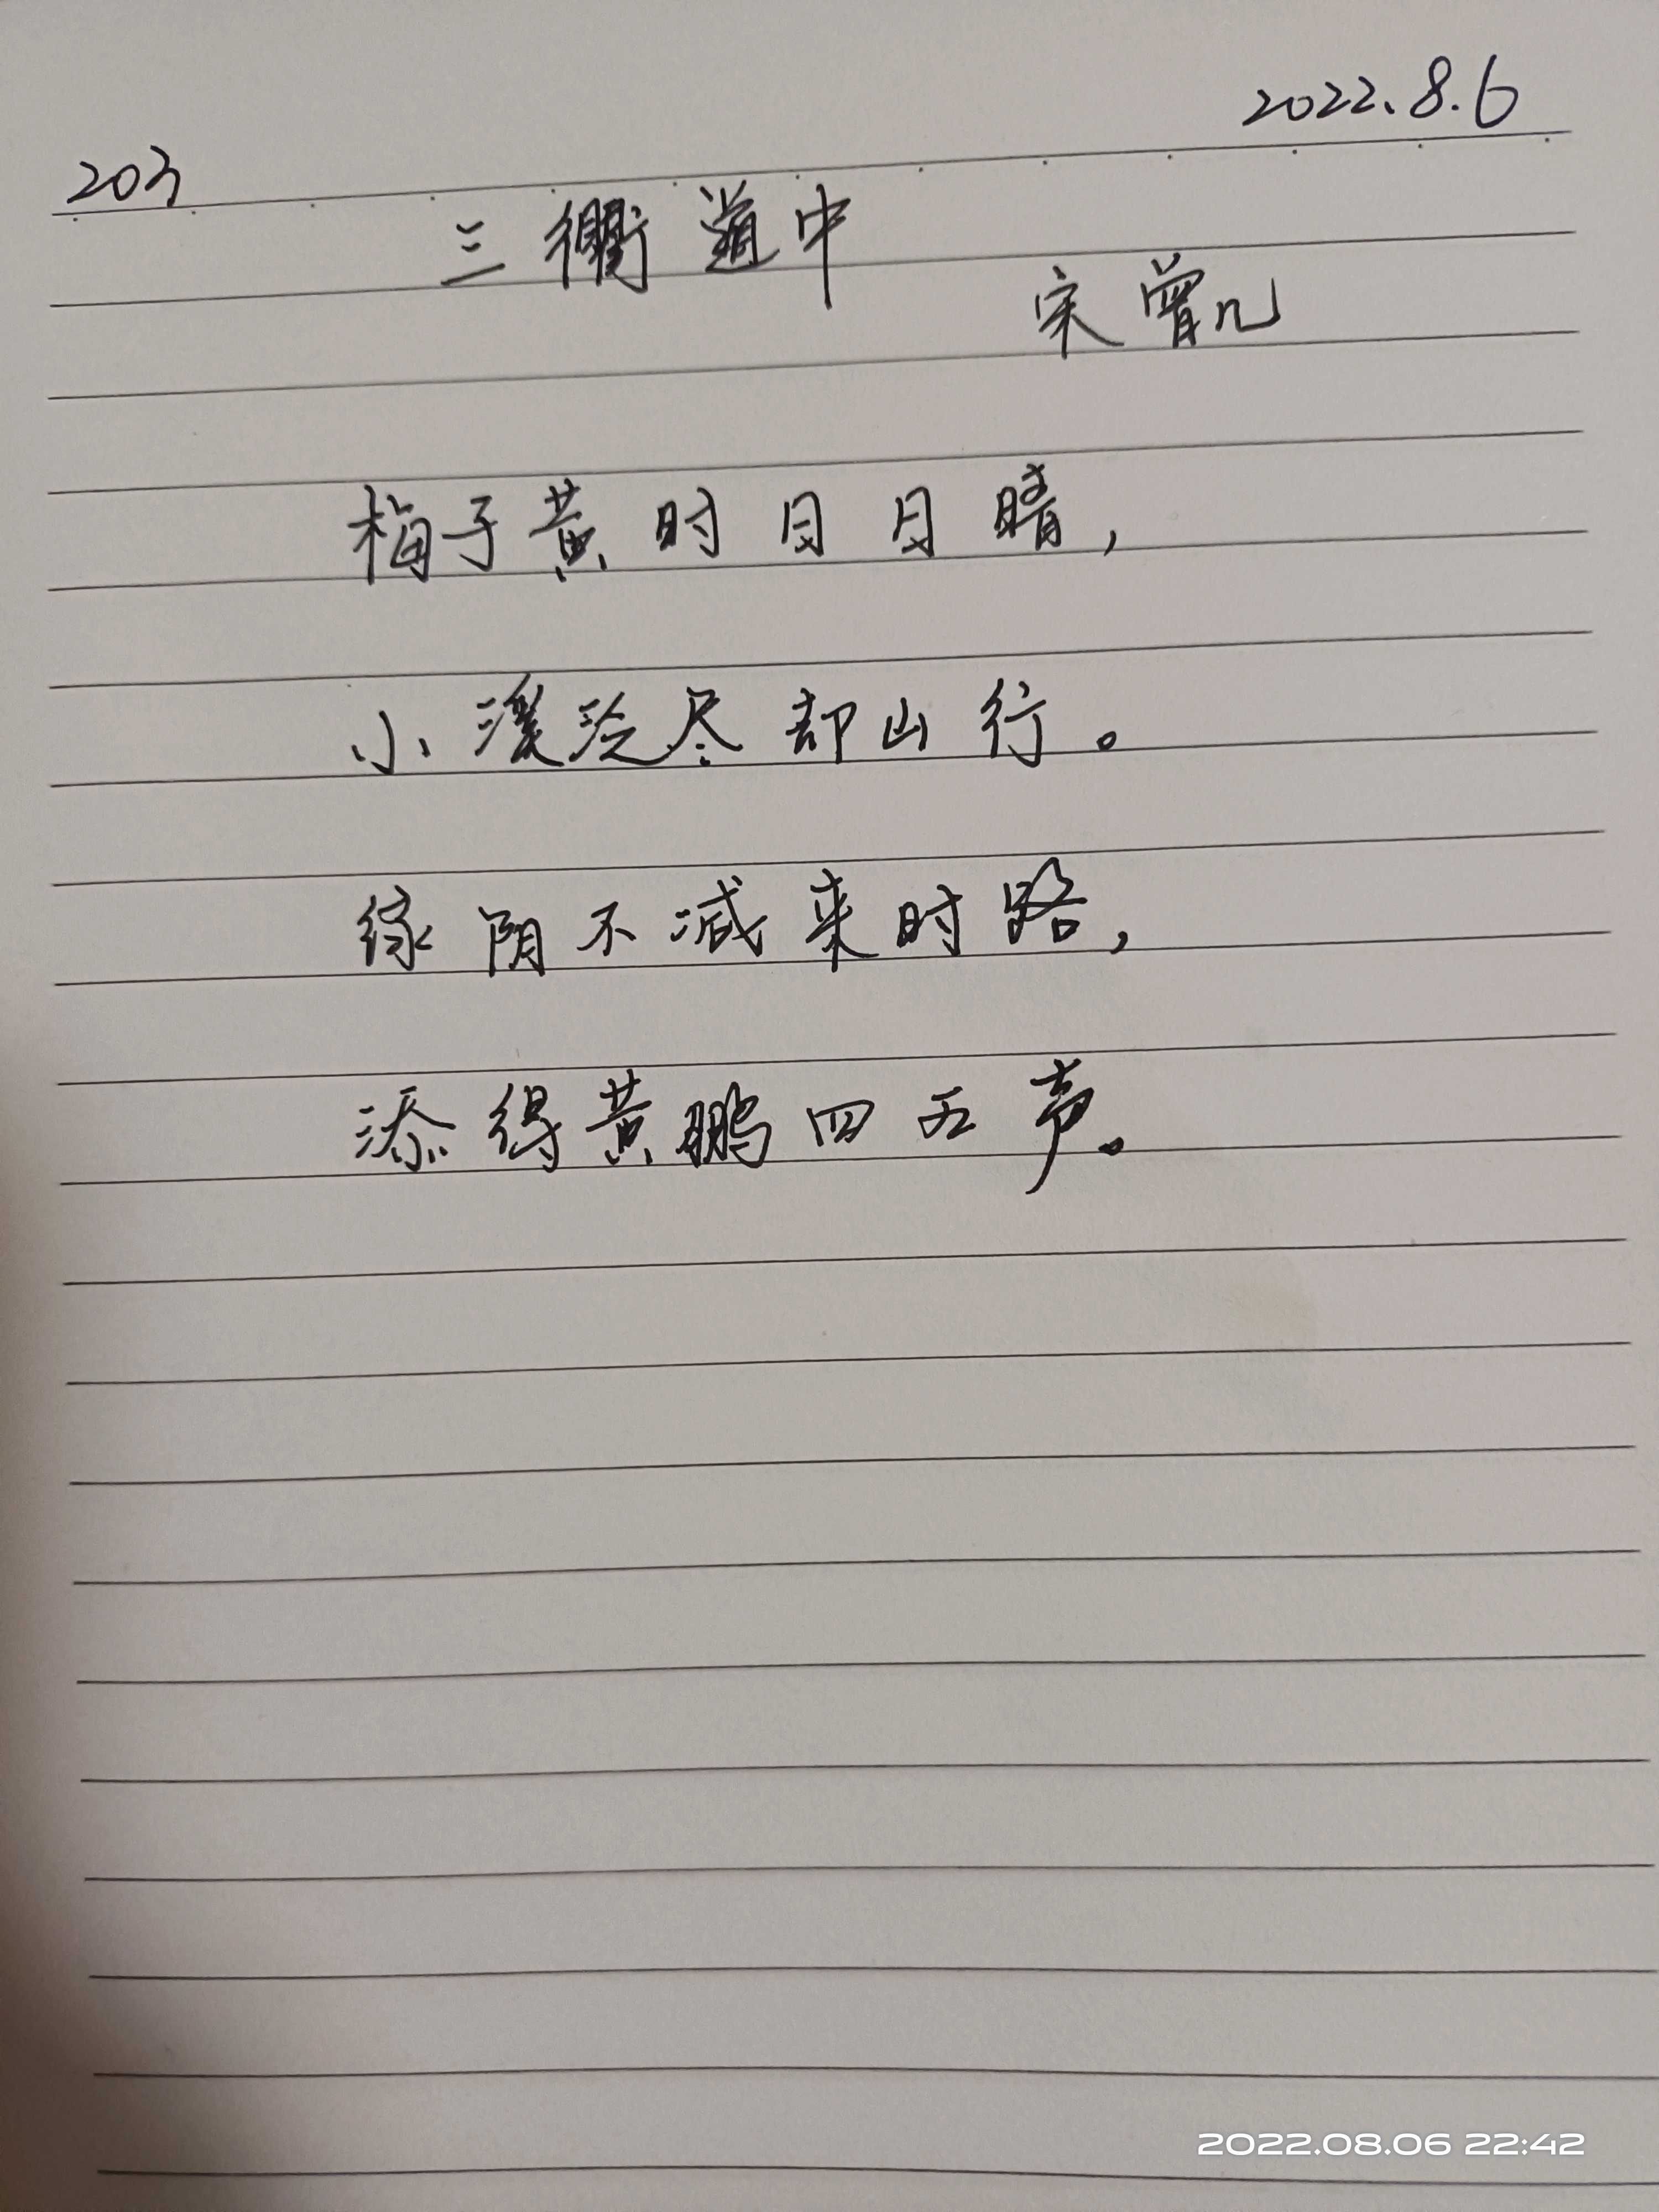 2022.8.6
203
三衢道中
宋 曾几
梅子黄时日日晴,
小溪泛尽却山行。
绿阴不减来时路,
添得黄鹂四五声。
2022.08.06 22:42